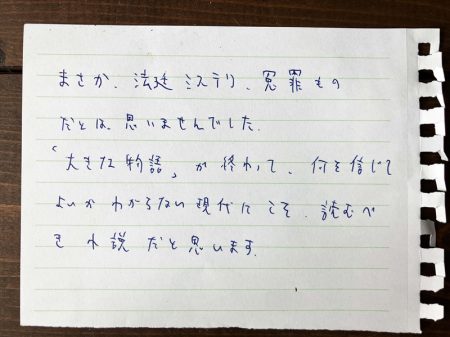 まさか、法廷ミステリ、冤罪もの
だとは、思いませんでした。
「大きな物語」が終わって、何を信じて
よいかわからない現代にこそ、読むべ
き小説だと思います。